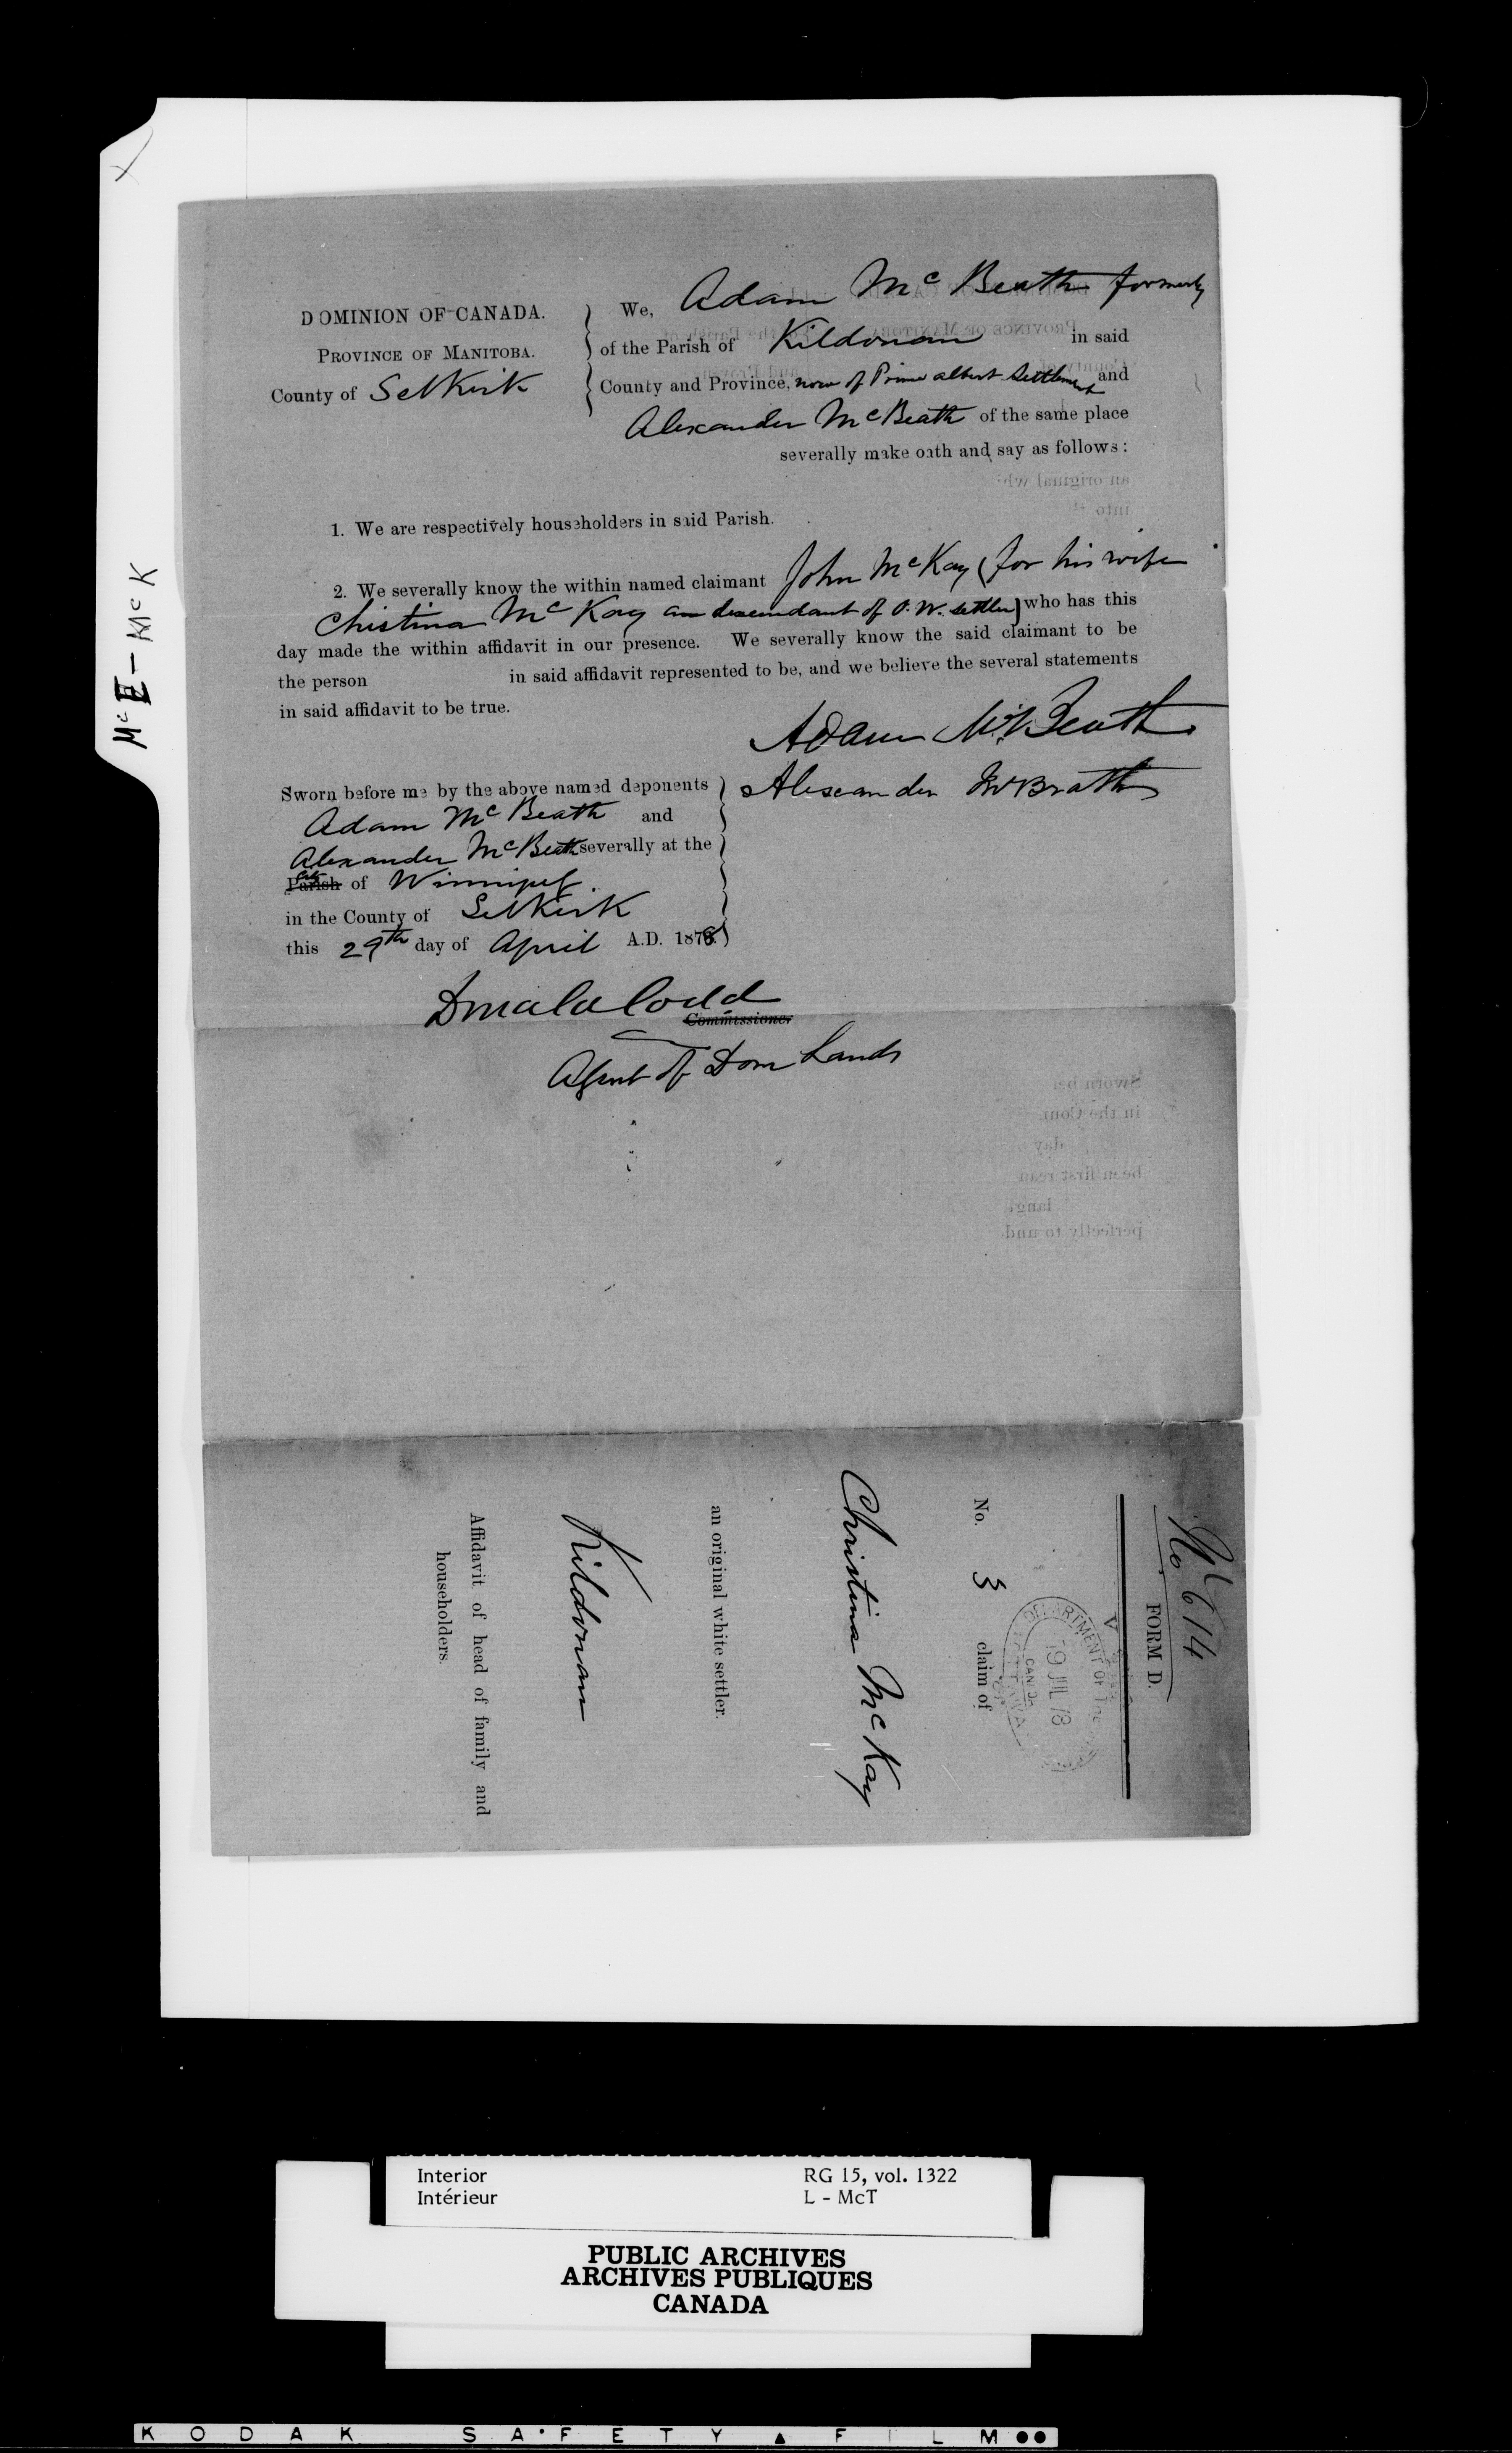 Mc E - Mc K
DOMINION OF CANADA.
PROVINCE OF MANITOBA.
County of Selkirk
We, Adam Mc Beath formerly
of the Parish of Kildonan in said
County and Province, now of Prince albert Settlement and
Alexander McBeath of the same place
severally make oath and say as follows:
1. We are respectively householders in said Parish.
2. We severally know the within named claimant John McKay (for his wife
Christina Mc Kay a descendant of O. W. settler) who has this
day made the within affidavit in our presence. We severally know the said claimant to be
the person in said affidavit represented to be, and we believe the several statements
in said affidavit to be true.
Adam McBeath
Alexander McBeath
Sworn before me by the above named deponents
Adam Mc Beath and
Alexander McBeath severally at the
City
Parish of Winnipeg
in the County of Selkirk
this 29th day of April A.D. 1878.
Donald Codd
Commissioner
Agent of Dom Lands
No 614
FORM D.
DEPARTMENT OF THE
19 JUL 78
CANADA
OTTAWA
No. 3 claim of
Christina McKay
an original white settler.
Kildonan
Affidavit of head of family and
householders.
Interior
Intérieur
RG 15, vol. 1322
L - McT
PUBLIC ARCHIVES
ARCHIVES PUBLIQUES
CANADA
KODAK SAFETY FILM